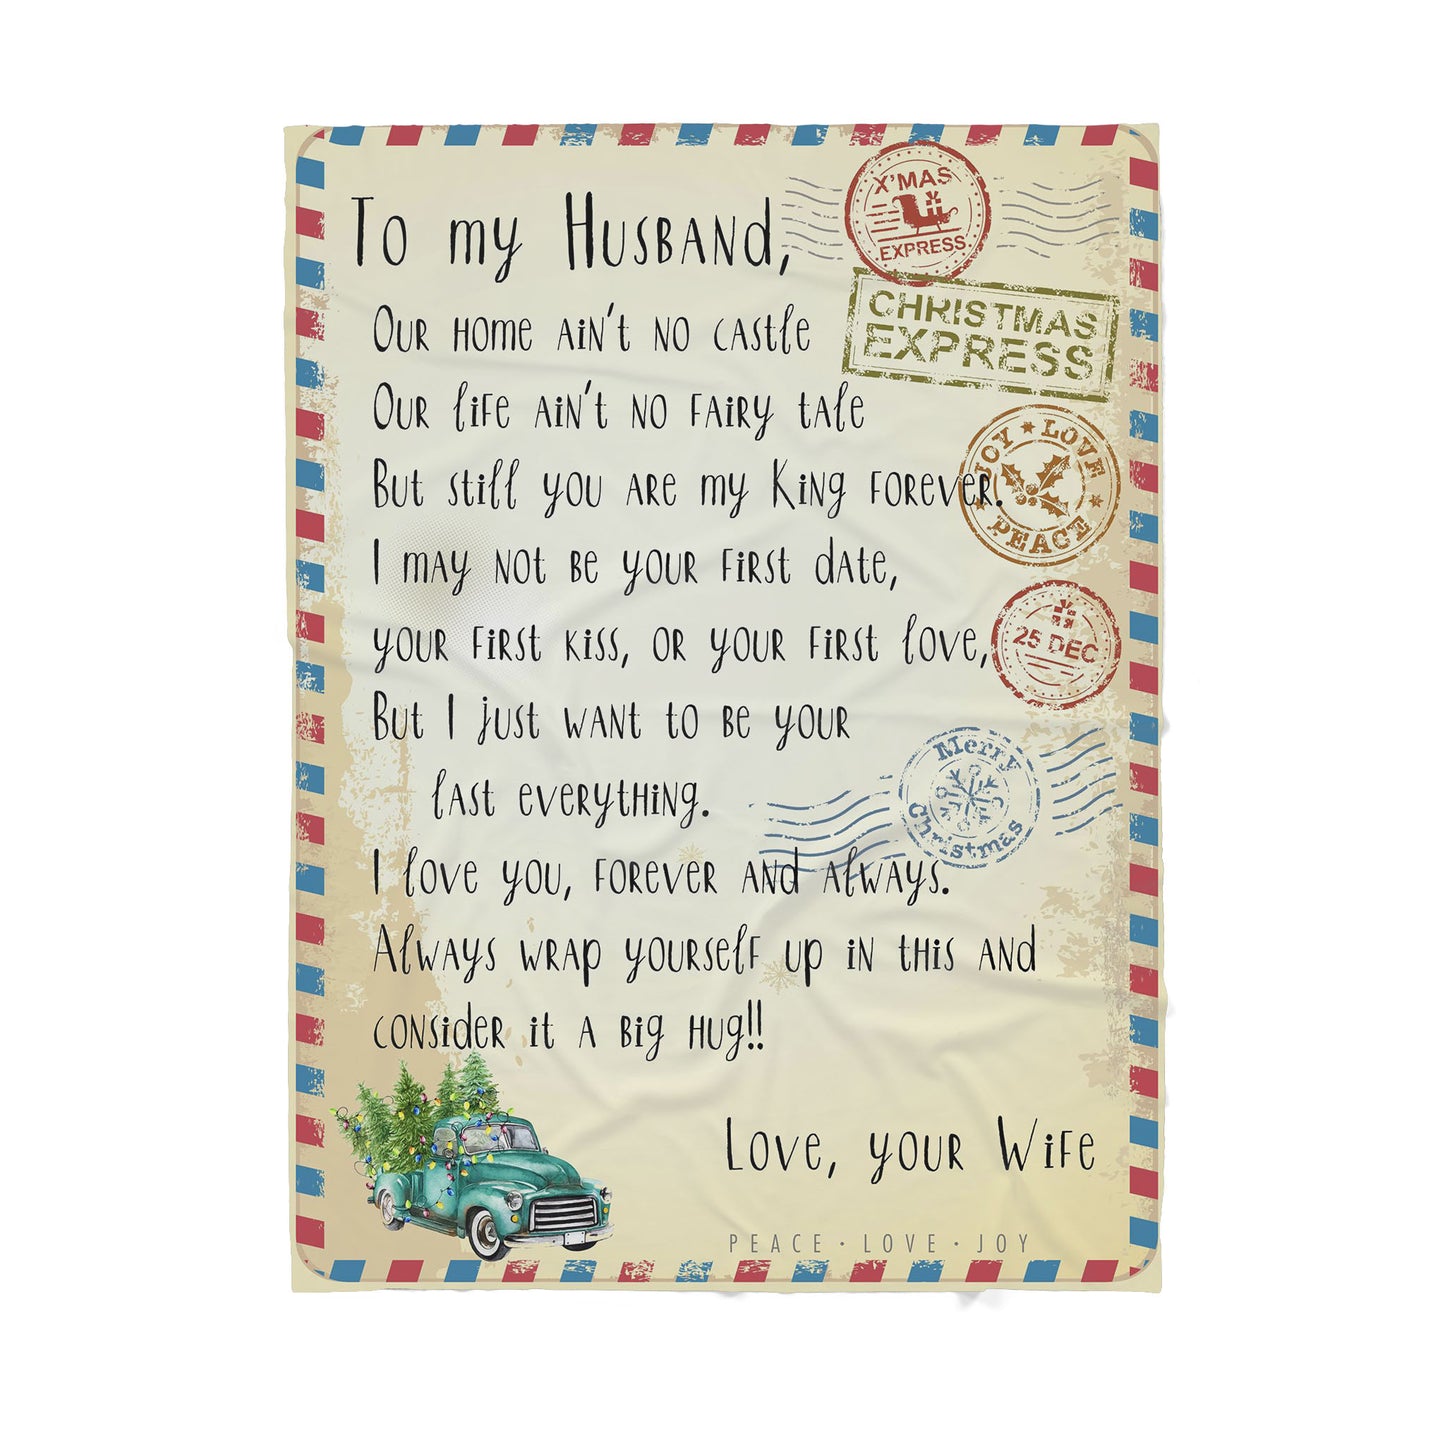 X'MAS
EXPRESS
To my Husband,
CHRISTMAS
EXPRESS
Our home ain't no castle
Our life ain't no fairy tale
JOY ★ LOVE ★ PEACE ★
But still you are my King forever.
I may not be your first date,
your first kiss, or your first love,
25 DEC
But I just want to be your
Merry
Christmas
last everything.
I love you, forever and always.
Always wrap yourself up in this and
consider it a big hug!!
Love, your Wife
PEACE · LOVE · JOY